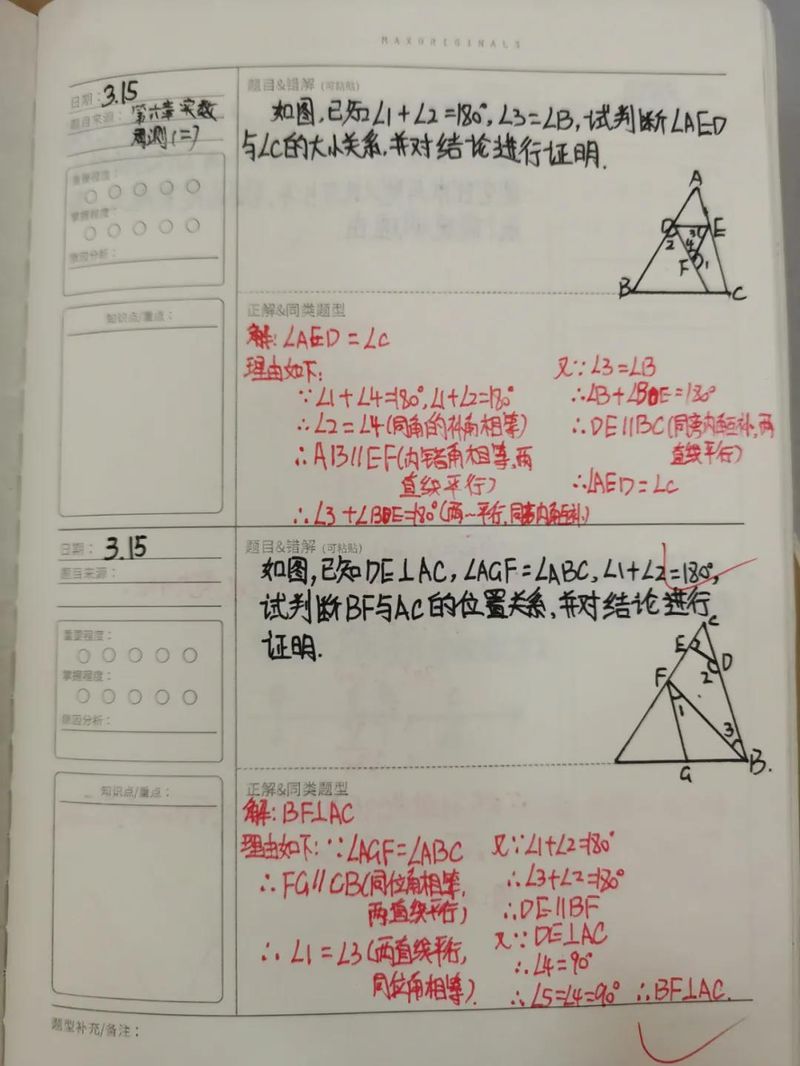 MAXORIGINALS
日期：3.15
题目来源：第六章实数
周测(二)
重要程度：
掌握程度：
错因分析：
知识点/重点：
题目&错解（可粘贴）
如图,已知∠1+∠2=180°,∠3=∠B,试判断∠AED
与∠C的大小关系,并对结论进行证明.
A
D
E
2
3
4
F
1
B
C
正解&同类题型
解:∠AED=∠C
理由如下:
∵∠1+∠4=180°,∠1+∠2=180°
∴∠2=∠4(同角的补角相等)
∴AB∥EF(内错角相等,两
直线平行)
∴∠3+∠BDE=180°(两一平行,同旁内角互补)
又∵∠3=∠B
∴∠B+∠BDE=180°
∴DE∥BC(同旁内角互补,两
直线平行)
∴∠AED=∠C
日期：3.15
题目来源：
重要程度：
掌握程度：
错因分析：
知识点/重点：
题目&错解（可粘贴）
如图,已知DE⊥AC,∠AGF=∠ABC,∠1+∠2=180°,
试判断BF与AC的位置关系,并对结论进行
证明.
C
E
D
2
F
1
3
G
B.
正解&同类题型
解:BF⊥AC
理由如下:∵∠AGF=∠ABC
∴FG∥CB(同位角相等,
两直线平行)
∴∠1=∠3(两直线平行,
同位角相等)
又∵∠1+∠2=180°
∴∠3+∠2=180°
∴DE∥BF
又∵DE⊥AC
∴∠4=90°
∴∠5=∠4=90° ∴BF⊥AC.
题型补充/备注：